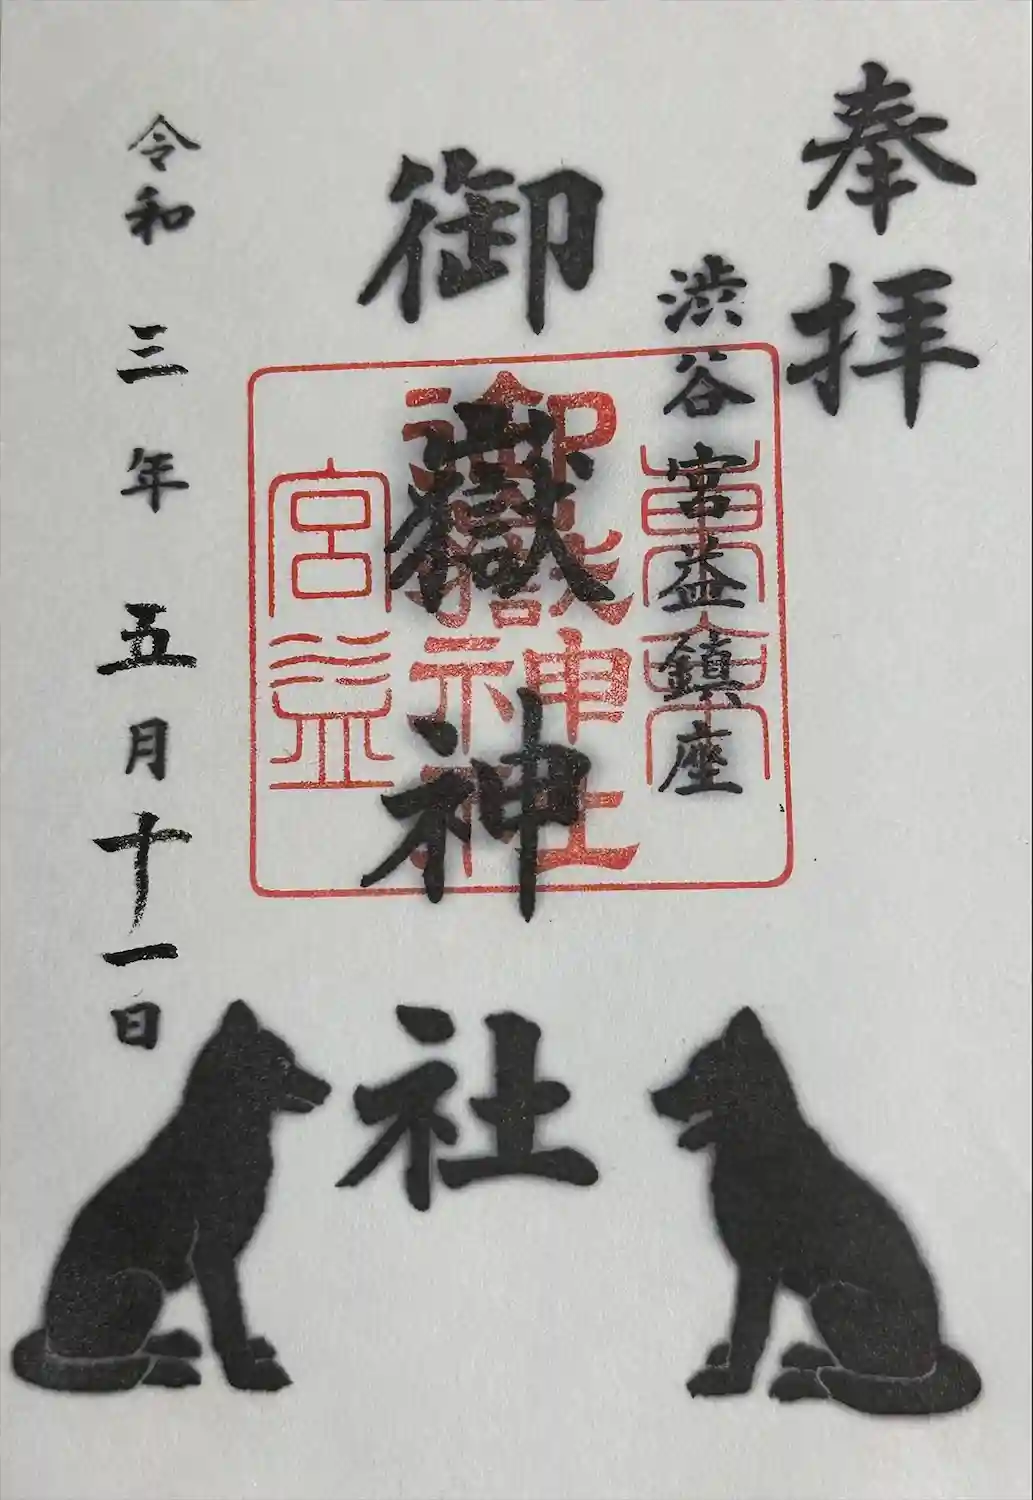 奉拝
渋谷宮益鎮座
御嶽神社
令和三年五月十一日
東京
御嶽神社
宮益